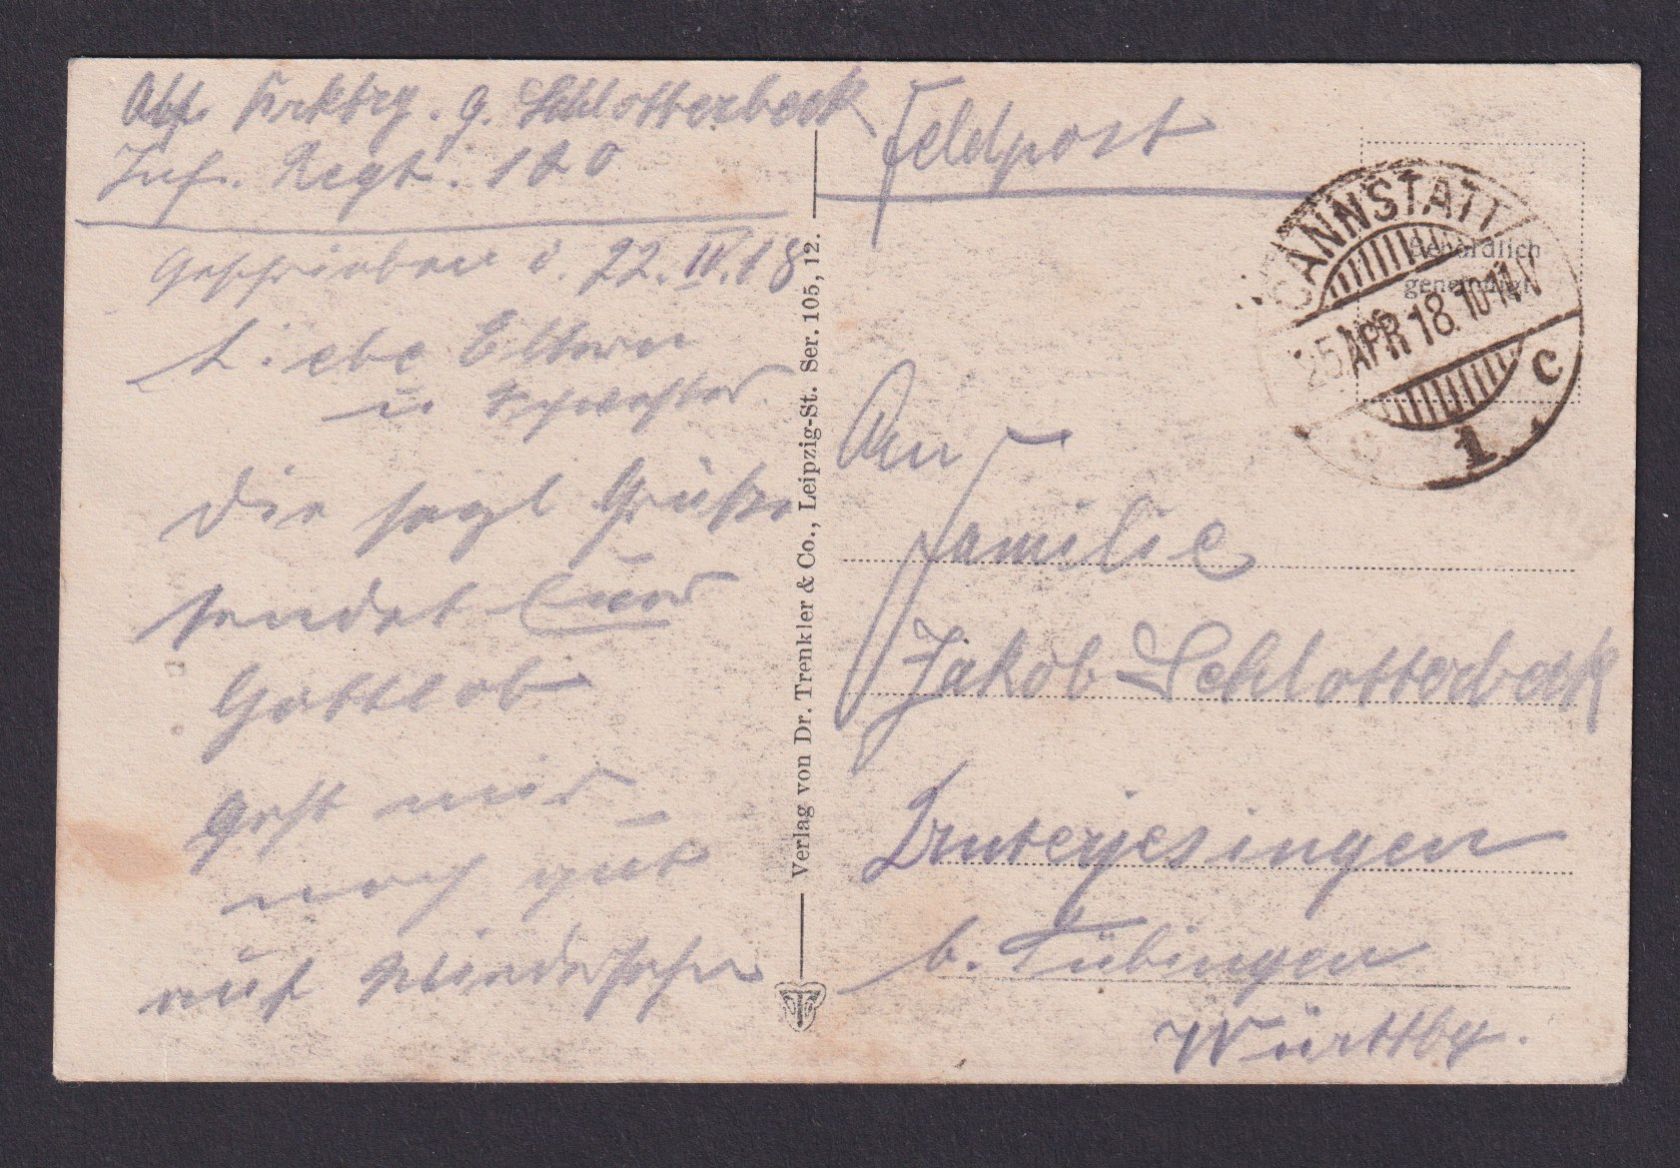 Abs. Krktrg. G. Schlotterbeck
Inf. Regt. 180
Geschrieben d. 22. IV. 18
Liebe Eltern
u Schwester
Die
Grüße
sendet Euer
Gottlob
Geht mir
noch gut
auf Wiedersehn
Verlag von Dr. Trenkler & Co., Leipzig-St. Ser. 105, 12.
Feldpost
CANNSTATT
25 APR 18. 10-11 N
1 c
Behördlich
genehmigt
An
Familie
Jakob Schlotterbeck
Unterjesingen
b. Tübingen
Württbg.